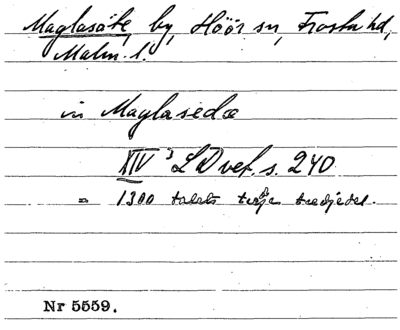 Maglasäte, by, Höör sn, Frosta hd,
Malm. l.
in Maglasedæ
XIV 3 LD vet. s. 240
= 1300 talets tredjedel.
Nr 5559.